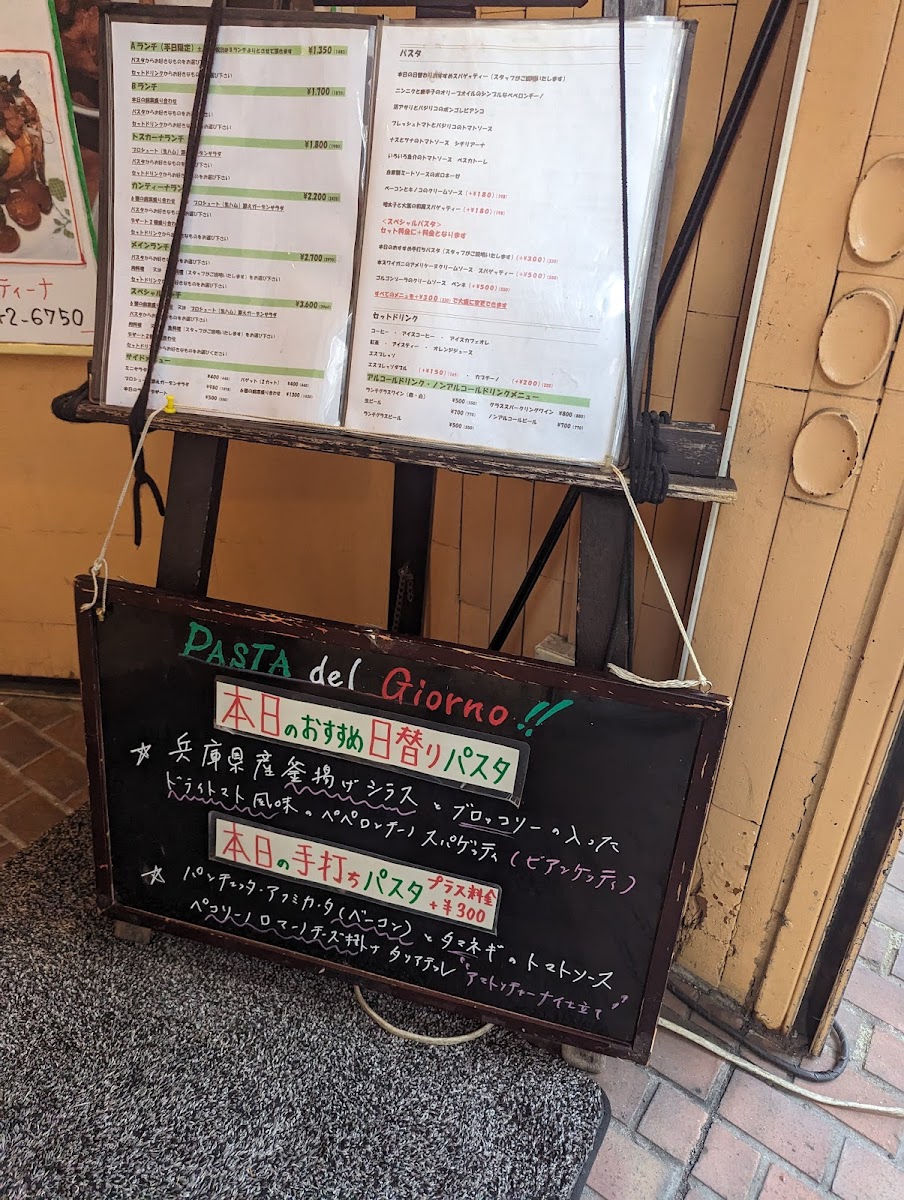 ティーナ
2-6750
Aランチ（平日限定） ¥1,350
パスタからお好きなものをお選び下さい
セットドリンクからお好きなものをお選び下さい
Bランチ ¥1,700
本日の前菜盛り合わせ
パスタからお好きなものをお選び下さい
セットドリンクからお好きなものをお選び下さい
トスカーナランチ ¥1,800
プロシュート（生ハム）
パスタからお好きなものをお選び下さい
セットドリンクからお好きなものをお選び下さい
カンティーナラン ¥2,200
6種の前菜盛り合わせ プロシュート（生ハム）添えガーデンサラダ
パスタからお好きなものをお選び下さい
セットドリンクからお好きなものをお選び下さい
メインランチ ¥2,700
スペシャル ¥3,600
パスタからお好きなものをお選び下さい
サイドメニュー
ミニサラダ ¥400
バゲット（2カット） ¥400
¥980
6種の前菜盛り合わせ ¥1300
¥500
パスタ
本日の日替わりおすすめスパゲッティー（スタッフがご説明いたします）
ニンニクと唐辛子のオリーブオイルのシンプルなペペロンチーノ
活アサリとパタリコのボンゴレビアンコ
フレッシュトマトとバジリコのトマトソース
ナスとツナのトマトソース シチリアーナ
いろいろ魚介のトマトソース ペスカトーレ
自家製ミートソースのボロネーゼ
ベーコンとキノコのクリームソース（+¥180）
明太子と大葉の和風スパゲッティー（+¥180）
＜スペシャルパスタ＞
セット料金に+料金となります
本日のおすすめ手打ちパスタ（スタッフがご説明いたします）（+¥300）
本ズワイガニのアメリケーヌクリームソース スパゲッティー（+¥500）
ゴルゴンゾーラのクリームソース ペンネ（+¥500）
すべてのメニュー+¥300で大盛に変更できます
セットドリンク
コーヒー ・ アイスコーヒー ・ アイスカフェオレ
紅茶 ・ アイスティー ・ オレンジジュース
エスプレッソ
エスプレッソダブル（+¥150） ・ カプチーノ（+¥200）
アルコールドリンク・ノンアルコールドリンクメニュー
ランチグラスワイン（赤・白） ¥500 グラススパークリングワイン ¥800
生ビール ¥700 ノンアルコールビール ¥700
ランチグラスビール ¥500
PASTA del Giorno!!
本日のおすすめ日替りパスタ
☆ 兵庫県産釜揚げシラスとブロッコリーの入った
ドライトマト風味のペペロンチーノスパゲッティ（ビアンケッティ）
本日の手打ちパスタ プラス料金 +¥300
☆ パンチェッタ・アフミカータ（ベーコン）とタマネギのトマトソース
ペコリーノロマーノチーズ掛け タリアテッレ "アマトリチャーナ仕立て"